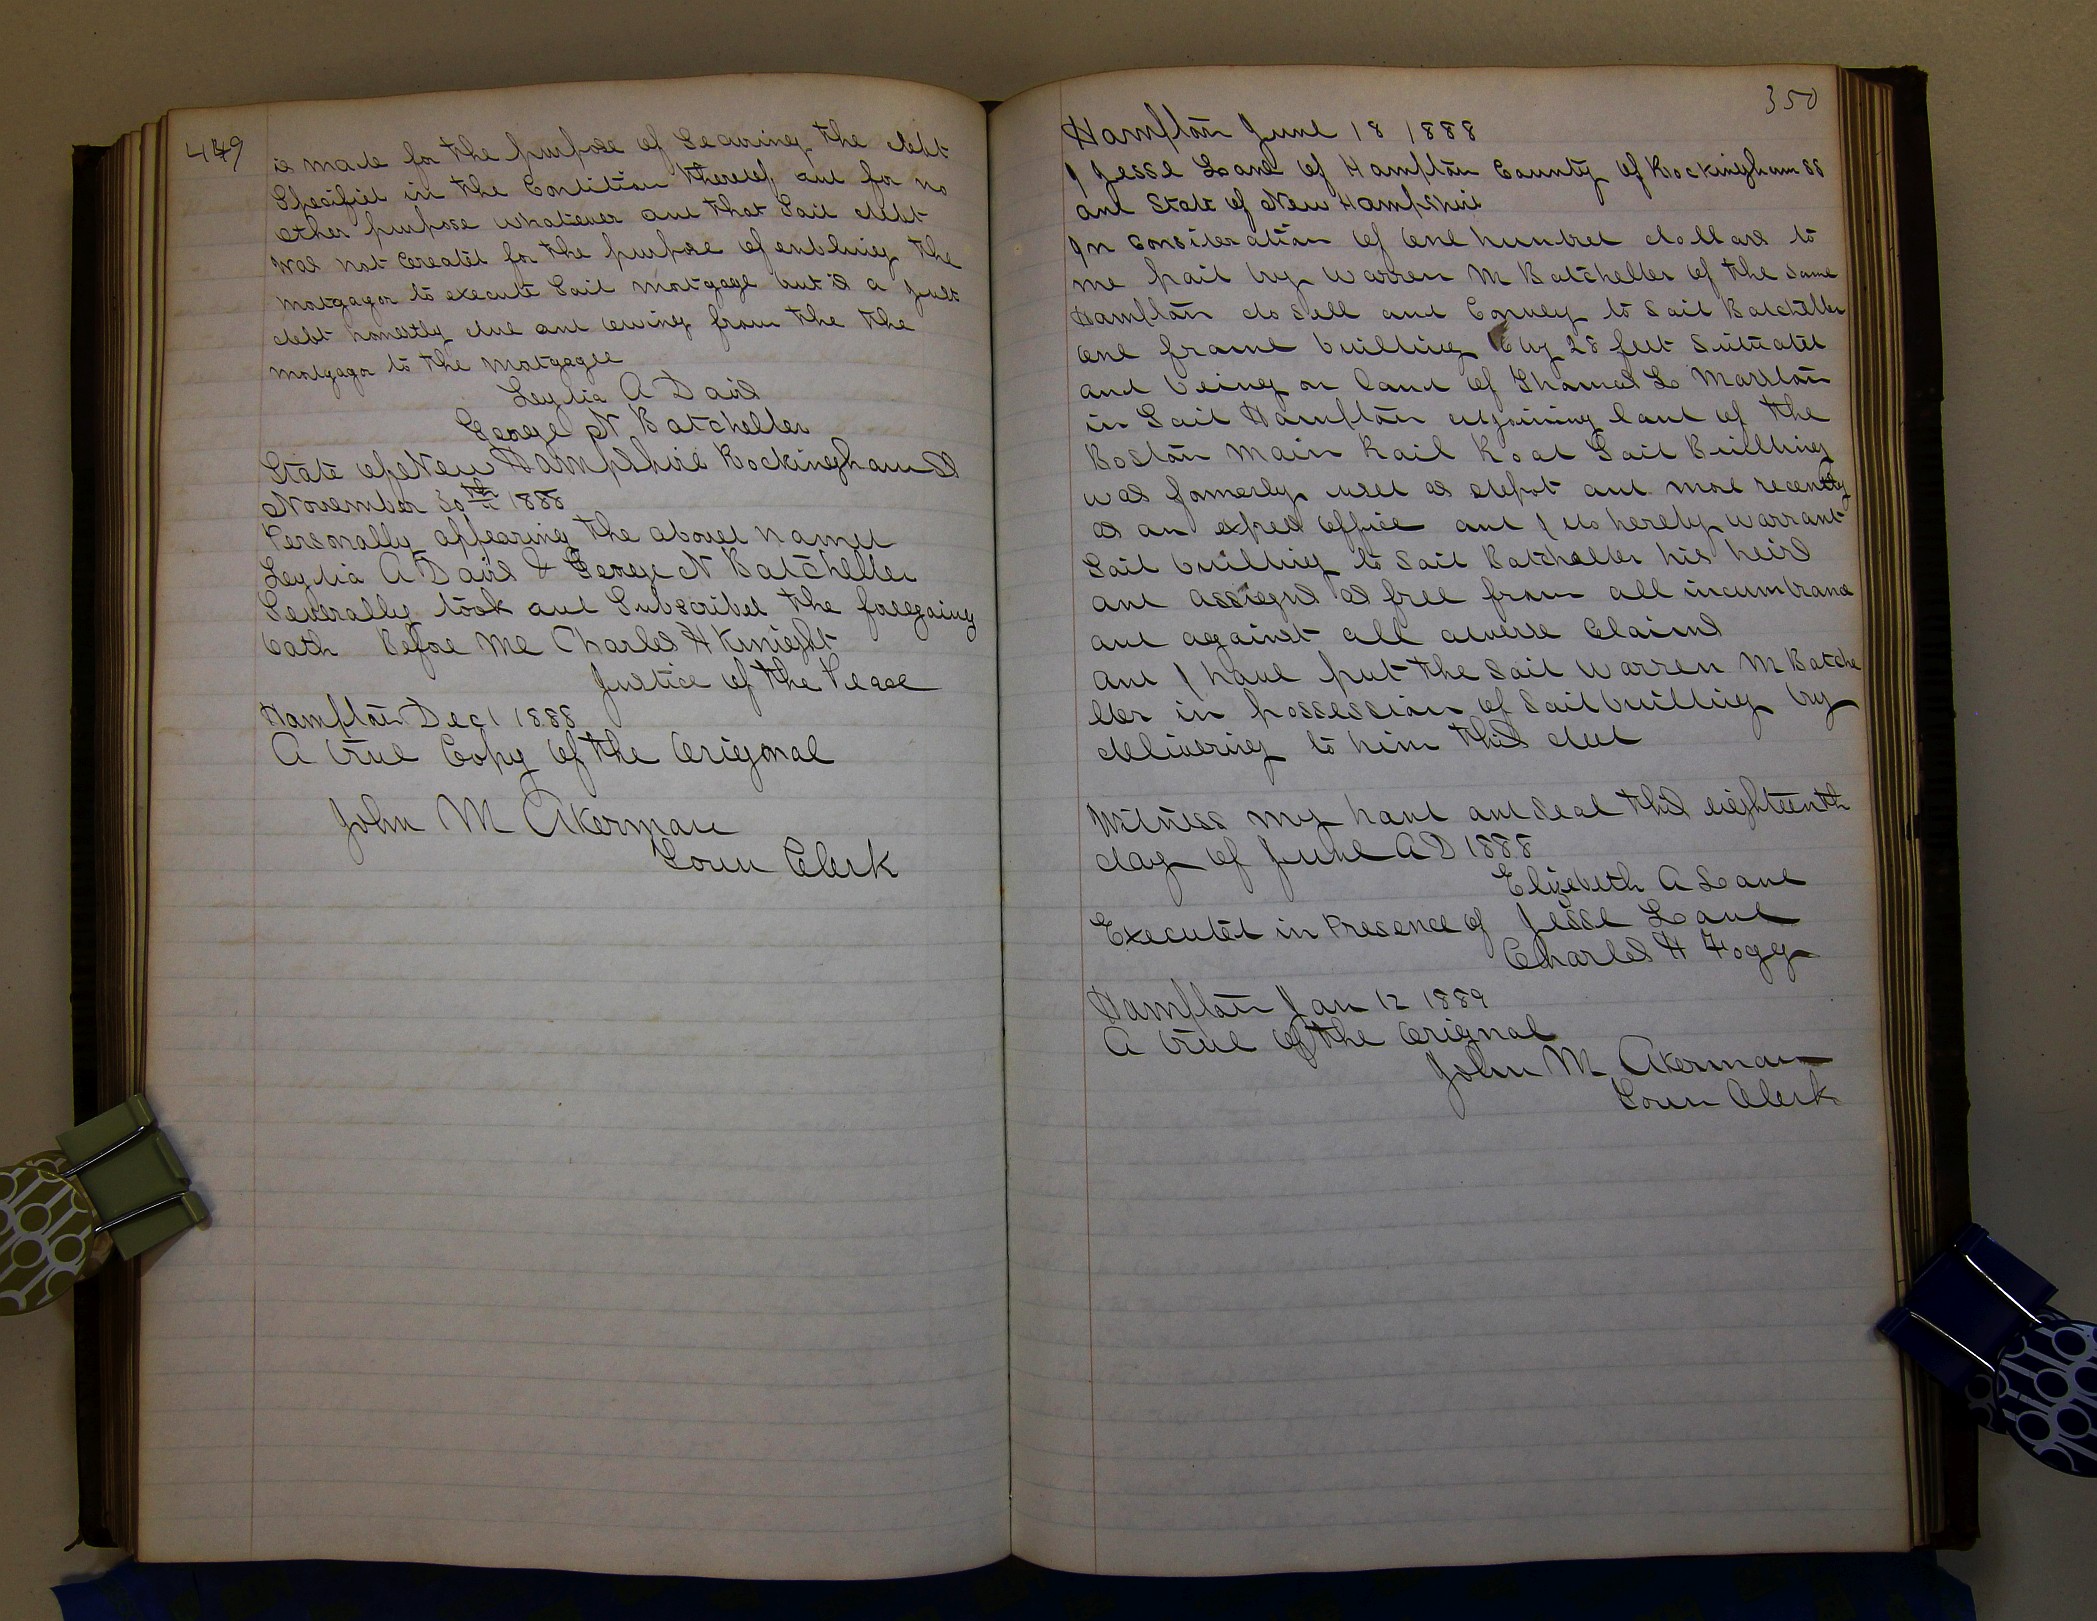 449
is made for the purpose of Securing the debt
Specified in the Condition thereof and for no
other purpose whatever and that Said debt
was not Created for the purpose of enabling the
mortgagor to execute Said mortgage but is a just
debt honestly due and owing from the the
mortgagor to the mortgagee
Leydia A Davis
George N Batcheller
State of New Hampshire Rockingham SS
November 30th 1888
Personally appearing the above named
Leydia A Davis & George N Batcheller
Severally took and Subscribed the foregoing
Oath Before Me Charles H Knight
Justice of the Peace
Hampton Dec 1 1888
A true Copy of the Original
John M Akerman
Town Clerk
350
Hampton June 18 1888
I Jesse Lane of Hampton County of Rockingham SS
and State of New Hampshire
In Consideration of one hundred dollars to
me paid by Warren M Batcheller of the Same
Hampton do Sell and Convey to Said Batcheller
one frame building by 28 feet Situated
and being on land of Thomas L Marston
in Said Hampton adjoining land of the
Boston Main Rail Road Said Building
was formerly used as depot and more recently
as an expres office and I do hereby warrant
Said building to Said Batcheller his heirs
and assigns as free from all incumbrance
and against all adverse Claims
and I have put the Said Warren M Batche
ller in possession of Said building by
delivering to him this deed
Witness my hand and Seal this eighteenth
day of June AD 1888
Elizebeth A Lane
Executed in Presence of Jesse Lane
Charles H Fogg
Hampton Jan 12 1889
A true of the Orignal
John M Akerman
Town Clerk